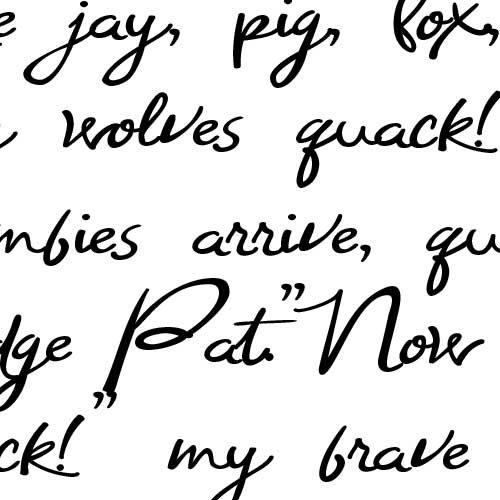 jay, pig, fox,
wolves quack!
mbies arrive, qu
dge Pat." Now
ck!" my brave